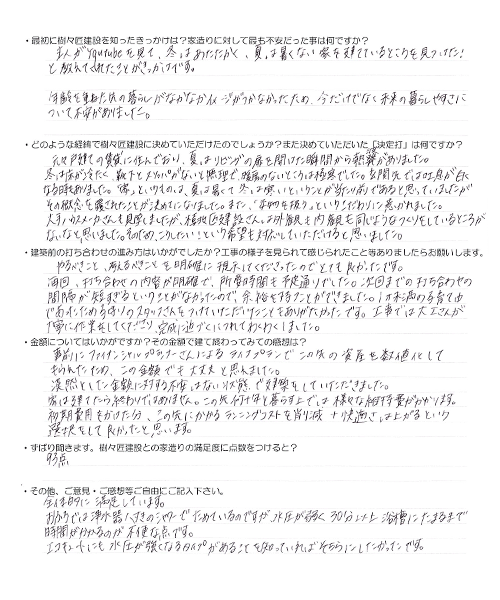 ・最初に樹々匠建設を知ったきっかけは？家造りに対して最も不安だった事は何ですか？
主人がYoutubeを見て、冬はあたたかく、夏は暑くない家を建てているところを見つけた！
と教えてくれたことがきっかけです。
年齢を重ねた先の暮らしがなかなかイメージがつかなかったため、今だけでなく未来の暮らしやすさに
ついて不安がありました。
・どのような経緯で樹々匠建設に決めていただけたのでしょうか？また決めていただいた「決定打」は何ですか？
元々戸建ての賃貸に住んでおり、夏はリビングの扉を開けた瞬間から熱気がありました。
冬は床が冷たく、靴下とスリッパがないと無理で、暖房のないところは極寒でした。玄関先では吐く息が白く
なる時もありました。"家"というものは、夏は暑くて冬は寒いということが当たり前であると思っていましたが
その概念を覆されたことが決めてになりました。また、"本物を扱う"というこだわりに惹かれました。
大手ハウスメーカーさんも見学しましたが、樹々匠建設さんは外観も内観も同じようなつくりをしているところが
ないなと思いました。そのため、こうしたい！という希望も対応していただけると思いました。
・建築前の打ち合わせの進み方はいかがでしたか？工事の様子を見られて感じられたこと等ありましたらお願いします。
やるべきこと、考えるべきことを明確に提示してくださったのでとても良かったです。
毎回、打ち合わせの内容が明確で、所要時間も予定通りでした。次回までの打ち合わせの
間隔が短すぎるということがなかったので、余裕を持つことができました。
丁寧に作業をしてくださり、完成に近づくにつれてわくわくしました。
・金額についてはいかがですか？その金額で建て終わってみての感想は？
事前にファイナンシャルプランナーさんによるライフプランでこの先の資産を数値化して
もらえたため、この金額でも大丈夫と思えました。
漠然とした金額に対する不安はない状態で建築をしていただきました。
家は建てたら終わりではありません。この先何十年と暮らす上では様々な維持費がかかります。
初期費用をかけた分、この先にかかるランニングコストを削り減 + 快適さは上がるという
選択をして良かったと思います。
・ずばり聞きます。樹々匠建設との家造りの満足度に点数をつけると？
93点
・その他、ご意見・ご感想等ご自由にご記入下さい。
全体的に満足しています。
おふろでは浄水器つきのシャワーでためているのですが、水圧が弱く30分以上 浴槽にたまるまで
時間がかかるのが不便な点です。
エコキュートにも水圧が強くなるタイプがあることを知っていればそちらにしたかったです。